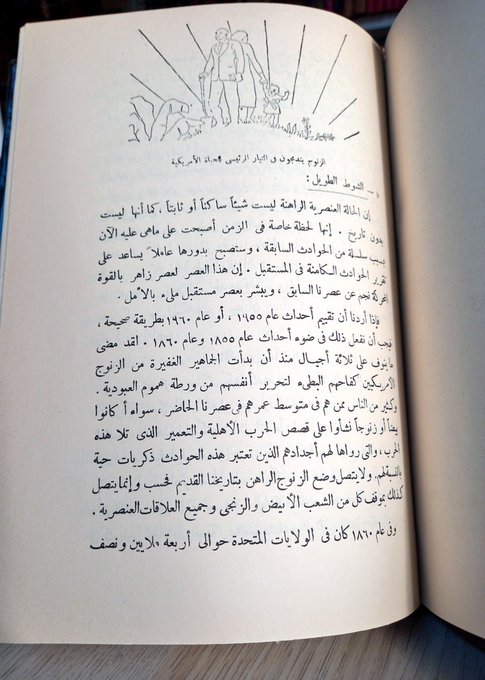 الزنوج يندمجون في التيار الرئيسي للحياة الأمريكية
— الشوط الطويل :
إن الحالة العنصرية الراهنة ليست شيئاً ساكناً أو ثابتاً ، كما أنها ليست
بدون تاريخ . إنها لحظة خاصة في الزمن أصبحت على ماهى عليه الآن
بسبب سلسلة من الحوادث السابقة ، وستصبح بدورها عاملاً يساعد على
تقرير الحوادث الكامنة في المستقبل . إن هذا العصر لعصر زاهر بالقوة
المحركة نجم عن عصرنا السابق ، ويبشر بعصر مستقبل ملىء بالأمل .
فإذا أردنا أن نقيم أحداث عام ١٩٥٥ ، أو عام ١٩٦٠ بطريقة صحيحة ،
فيجب أن نفعل ذلك في ضوء أحداث عام ١٨٥٥ وعام ١٨٦٠ . لقد مضى
ماينوف على ثلاثة أجيال منذ أن بدأت الجماهير الغفيرة من الزنوج
الأمريكيين كفاحهم البطىء لتحرير أنفسهم من ورطة هموم العبودية .
وكثير من الناس ممن هم في متوسط عمرهم في عصرنا الحاضر ، سواء أ كانوا
بيضاً أو زنوجاً نشأوا على قصص الحرب الأهلية والتعمير الذى تلا هذه
الحرب ، والتى رواها لهم أجدادهم الذين تعتبر هذه الحوادث ذكريات حية
بالنسبة لهم . ولا يتصل وضع الزنوج الراهن بتاريخنا القديم فحسب وإنما يتصل
كذلك بموقف كل من الشعب الأبيض والزنجى وجميع العلاقات العنصرية .
وفي عام ١٨٦٠ كان في الولايات المتحدة حوالى أربعة ملايين ونصف